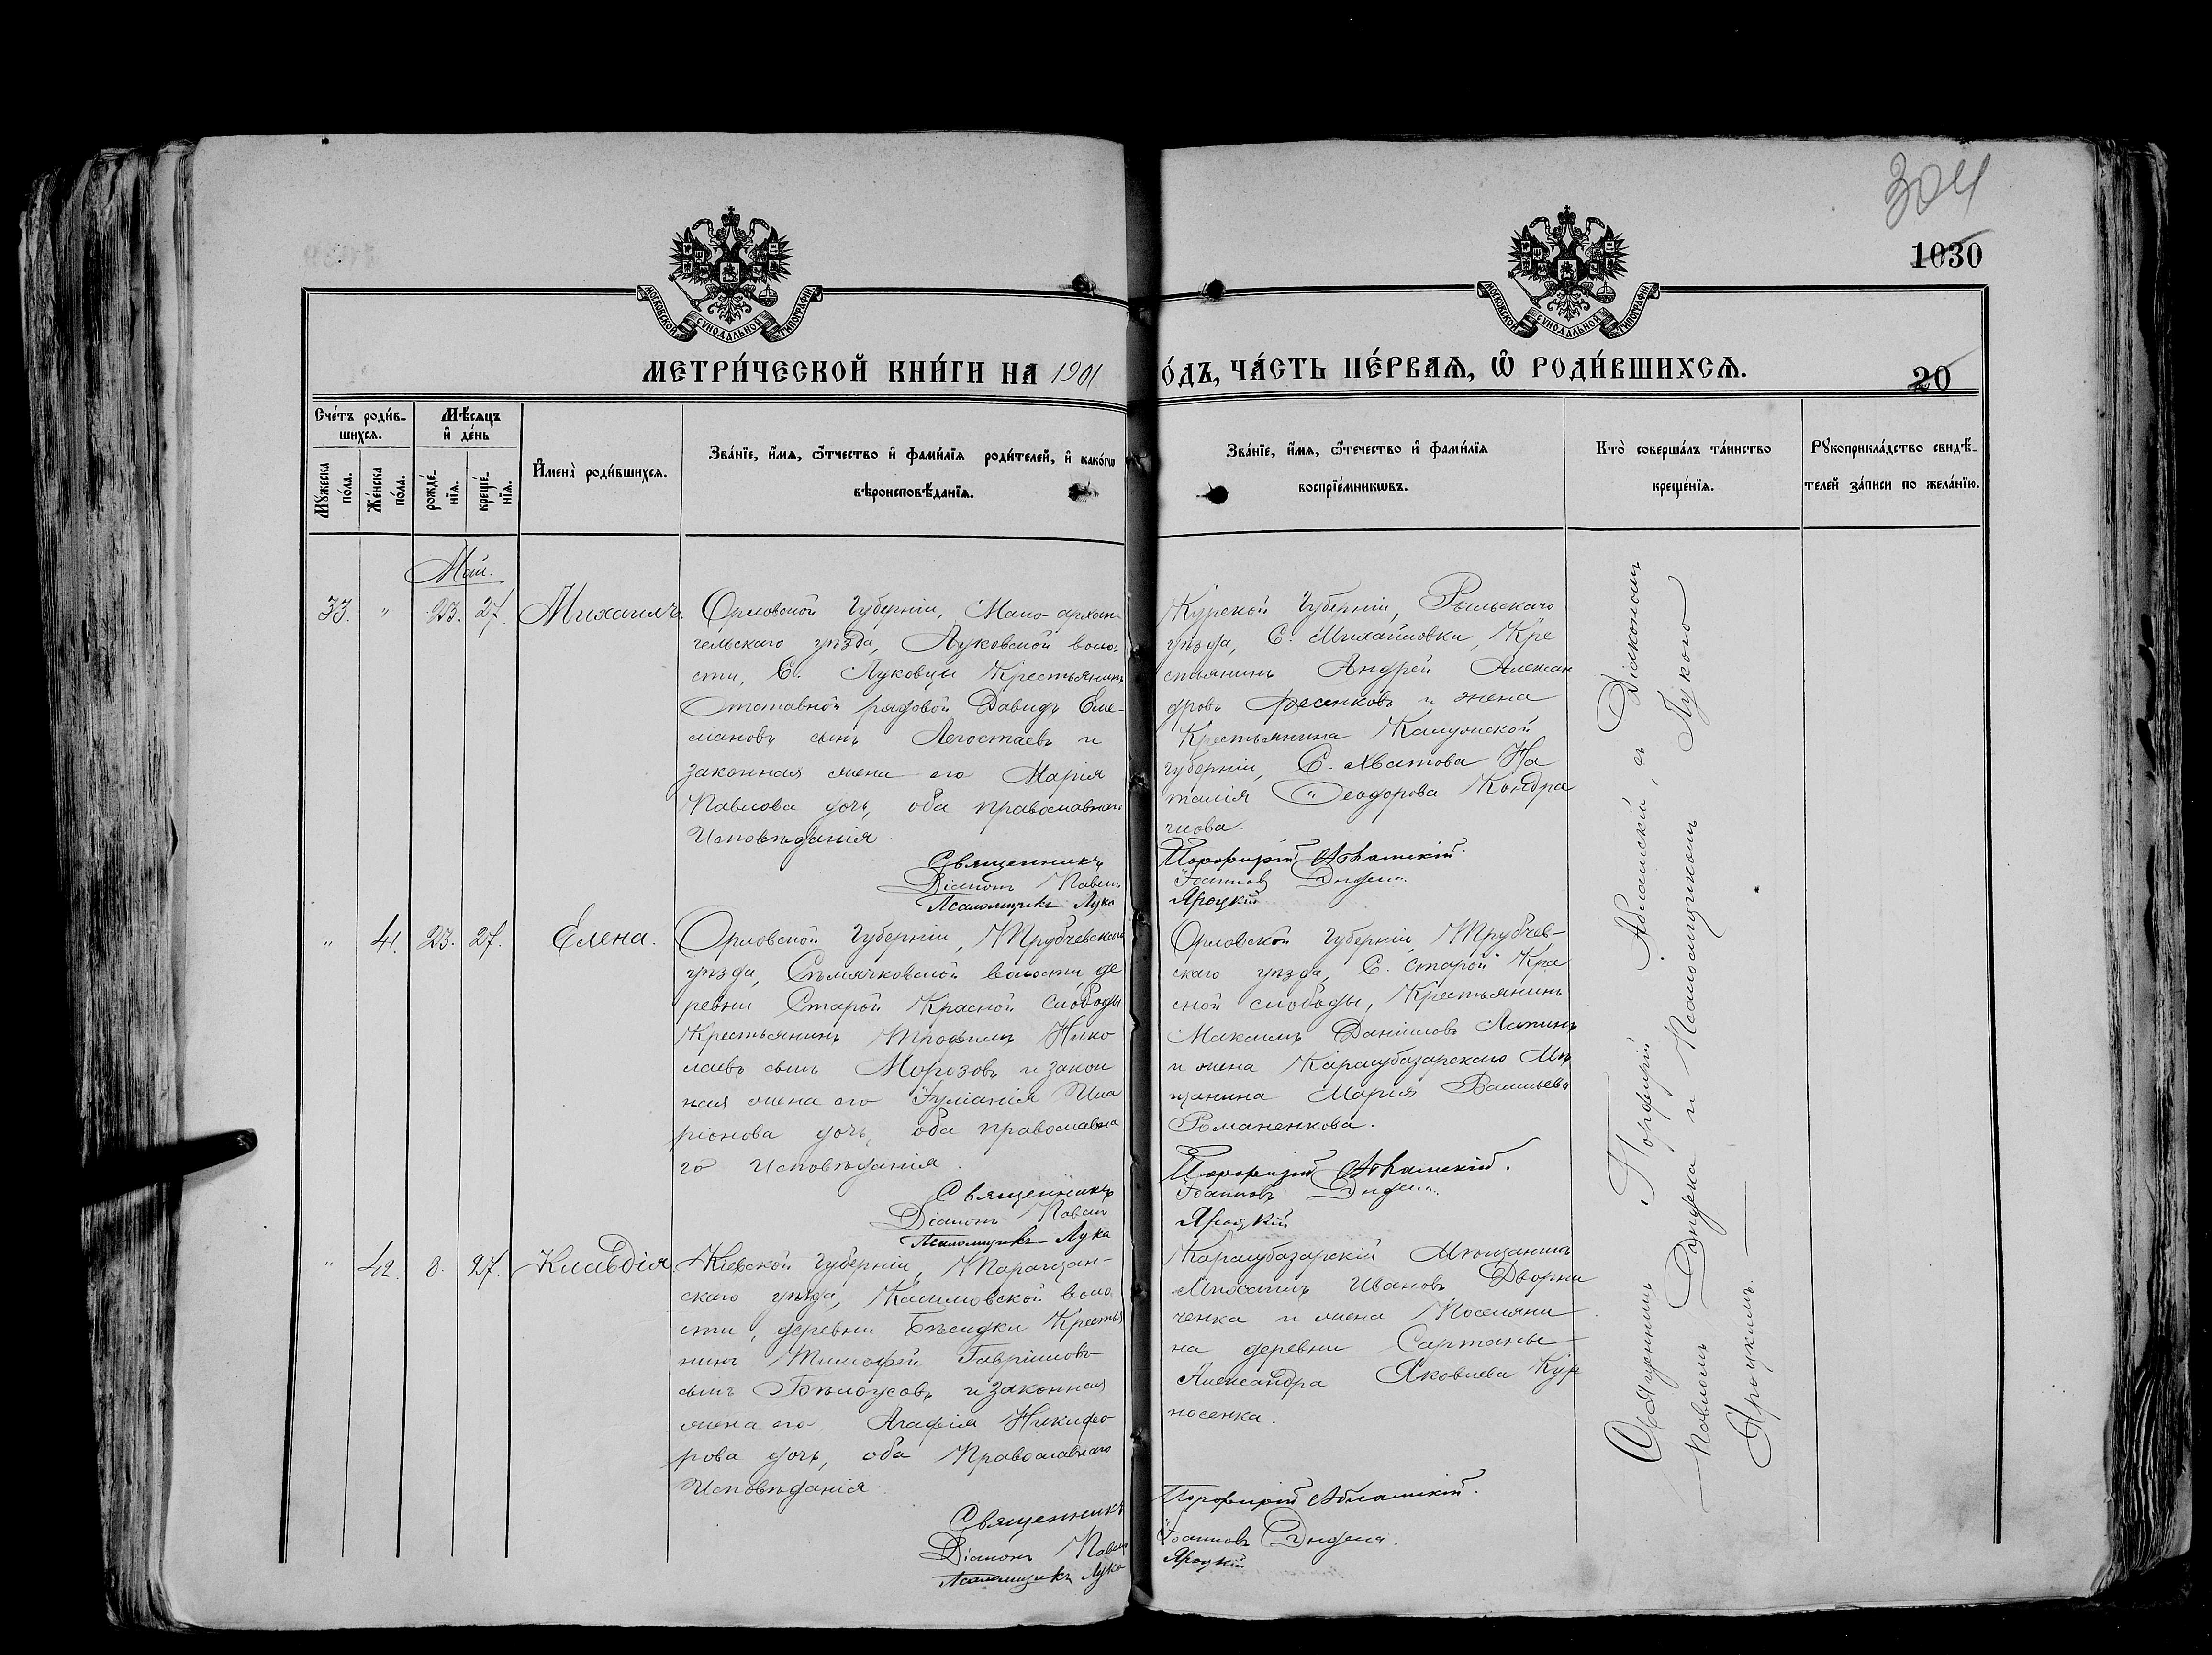 304
1030
МОСКОВСКОЙ СѴНОДАЛЬНОЙ ТИПОГРАФІИ
МОСКОВСКОЙ СѴНОДАЛЬНОЙ ТИПОГРАФІИ
МЕТРИ́ЧЕСКОЙ КНИ́ГИ НА 1901
О́ДЪ, ЧА́СТЬ ПЕ́РВАѦ, Ѡ҆ РОДИ́ВШИХСѦ.
20
Сче́тъ роди́в-
шихсѧ.
Мѣ́сѧцъ
и҆ де́нь
Мꙋ́жеска
по́ла.
Же́нска
по́ла.
рожде́-
нїѧ.
креще́-
нїѧ.
И҆мена̀ роди́вшихсѧ.
Зва́нїе, и҆́мѧ, ѻ҆́тчество и҆ фами́лїѧ роди́телей, и҆ како́гѡ
вѣроисповѣ́данїѧ.
Зва́нїе, и҆́мѧ, ѻ҆те́чество и҆ фами́лїѧ
воспрїе́мникѡвъ.
Кто̀ соверша́лъ та́инство
креще́нїѧ.
Рꙋкоприкла́дство свидѣ́-
телей за́писи по жела́нїю.
Май.
33. " 23. 27. Михаилъ.
Орловской Губерніи, Мало-архан
гельскаго уѣзда, Луковской воло-
сти, С. Луковцы Крестьянинъ
Отставной рядовой Давидъ Еме-
ліановъ сынъ Легостаевъ и
законная жена его Марія
Павлова дочь, оба православнаго
Исповѣданія.
Священникъ
Діаконъ Павелъ
Псаломщикъ Лука
Курской Губерніи, Рыльскаго
уѣзда, С. Михайловки, Кре
стьянинъ Андрей Алексан
дровъ Фесенковъ и жена
Крестьянина Калужской
губерніи, С. Хватова На
талія Ѳеодорова Кондра
чкова.
Порфирій Абламскій.
Іоанновъ Дидена.
Яроцкій
" 41. 23. 27. Елена.
Орловской Губерніи, Трубчевскаго
уѣзда, Сѣмячковской волости, де
ревни Старой Красной слободы
Крестьянинъ Трофимъ Нико
лаевъ сынъ Морозовъ и закон
ная жена его Іуліанія Ила
ріонова дочь, оба православна
го Исповѣданія.
Священникъ
Діаконъ Павелъ
Псаломщикъ Лука
Орловской Губерніи, Трубчев-
скаго уѣзда, С. Старой Кра
сной слободы, Крестьянинъ
Максимъ Даніиловъ Лапинъ
и жена Карасубазарскаго Мѣ
щанина Марія Васильева
Романенкова.
Порфирій Абламскій.
Іоанновъ Дидена.
Яроцкій
" 42. 8. 27. Клавдія.
Кіевской Губерніи, Таращан-
скаго уѣзда, воло
сти, деревни Бѣседки Крестья
нинъ Тимофей Гавріиловъ
сынъ Бѣлоусовъ и законная
жена его Агафія Никифо-
рова дочь, оба Православнаго
Исповѣданія.
Священникъ
Діаконъ Павелъ
Псаломщикъ Лука
Карасубазарскій Мѣщанинъ
Михаилъ Ивановъ Дворни
ченка и жена Поселяни
на деревни Сартаны
Александра Яковлева Кур
носенка.
Порфирій Абламскій.
Іоанновъ Дидена.
Яроцкій
Священникъ Порфирій Абламскій, съ Діакономъ
Павломъ Дидена и Псаломщикомъ Лукою
Яроцкимъ.